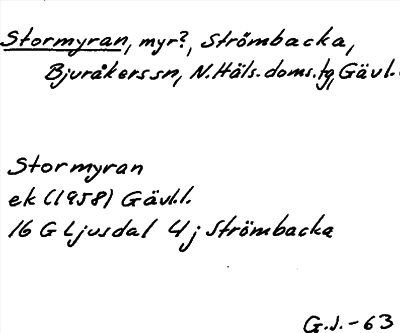 Stormyran, myr?, Strömbacka,
Bjuråkerssn, N.Häls.doms.tg, Gävl.
Stormyran
ek (1958) Gävl.l.
16 G Ljusdal 4j Strömbacka
G.J.-63